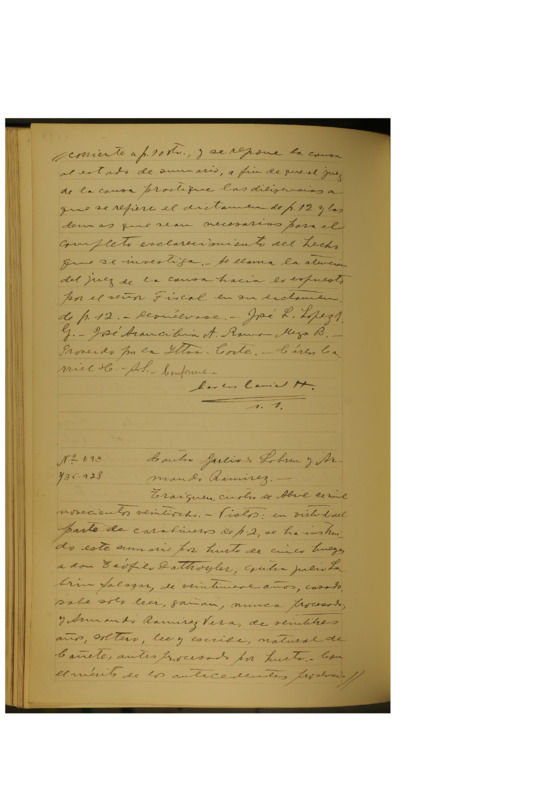 corriente a f. 10 vta., y se repone la causa
al estado de sumario, a fin de que el juez
de la causa practique las diligencias a
que se refiere el dictamen de f. 12 y las
demas que sean necesarias para el
completo esclarecimiento del hecho
que se investiga.- Se llama la atencion
del juez de la causa hacia lo expuesto
por el señor Fiscal en su dictamen
de f. 12.- Devuélvase.- José L. Lopez
G.- José Arancibia A. Ramon Meza B.-
Proveido por la Iltma. Corte.- Cárlos Ca
miel H.- S.S.- Conforme.-
Carlos Camiel H.
s. s.
Nº 193
Contra Julian Lobrin y Ar-
mando Ramirez.-
Traiguen, cuatro de Abril de mil
novecientos veintiocho.- Vistos: en virtud del
parte de carabineros de f. 2, se ha instrui
do este sumario por hurto de cinco bueyes
a don Teófilo, contra Julio Lo
brin Salazar, de veintinueve años, casado,
sabe solo leer, gañan, nunca procesado,
y Armando Ramirez Vera, de veintitres
años, soltero, lee y escribe, natural de
Cañete, antes procesado por hurto.- Con
el mérito de los antecedentes produci-